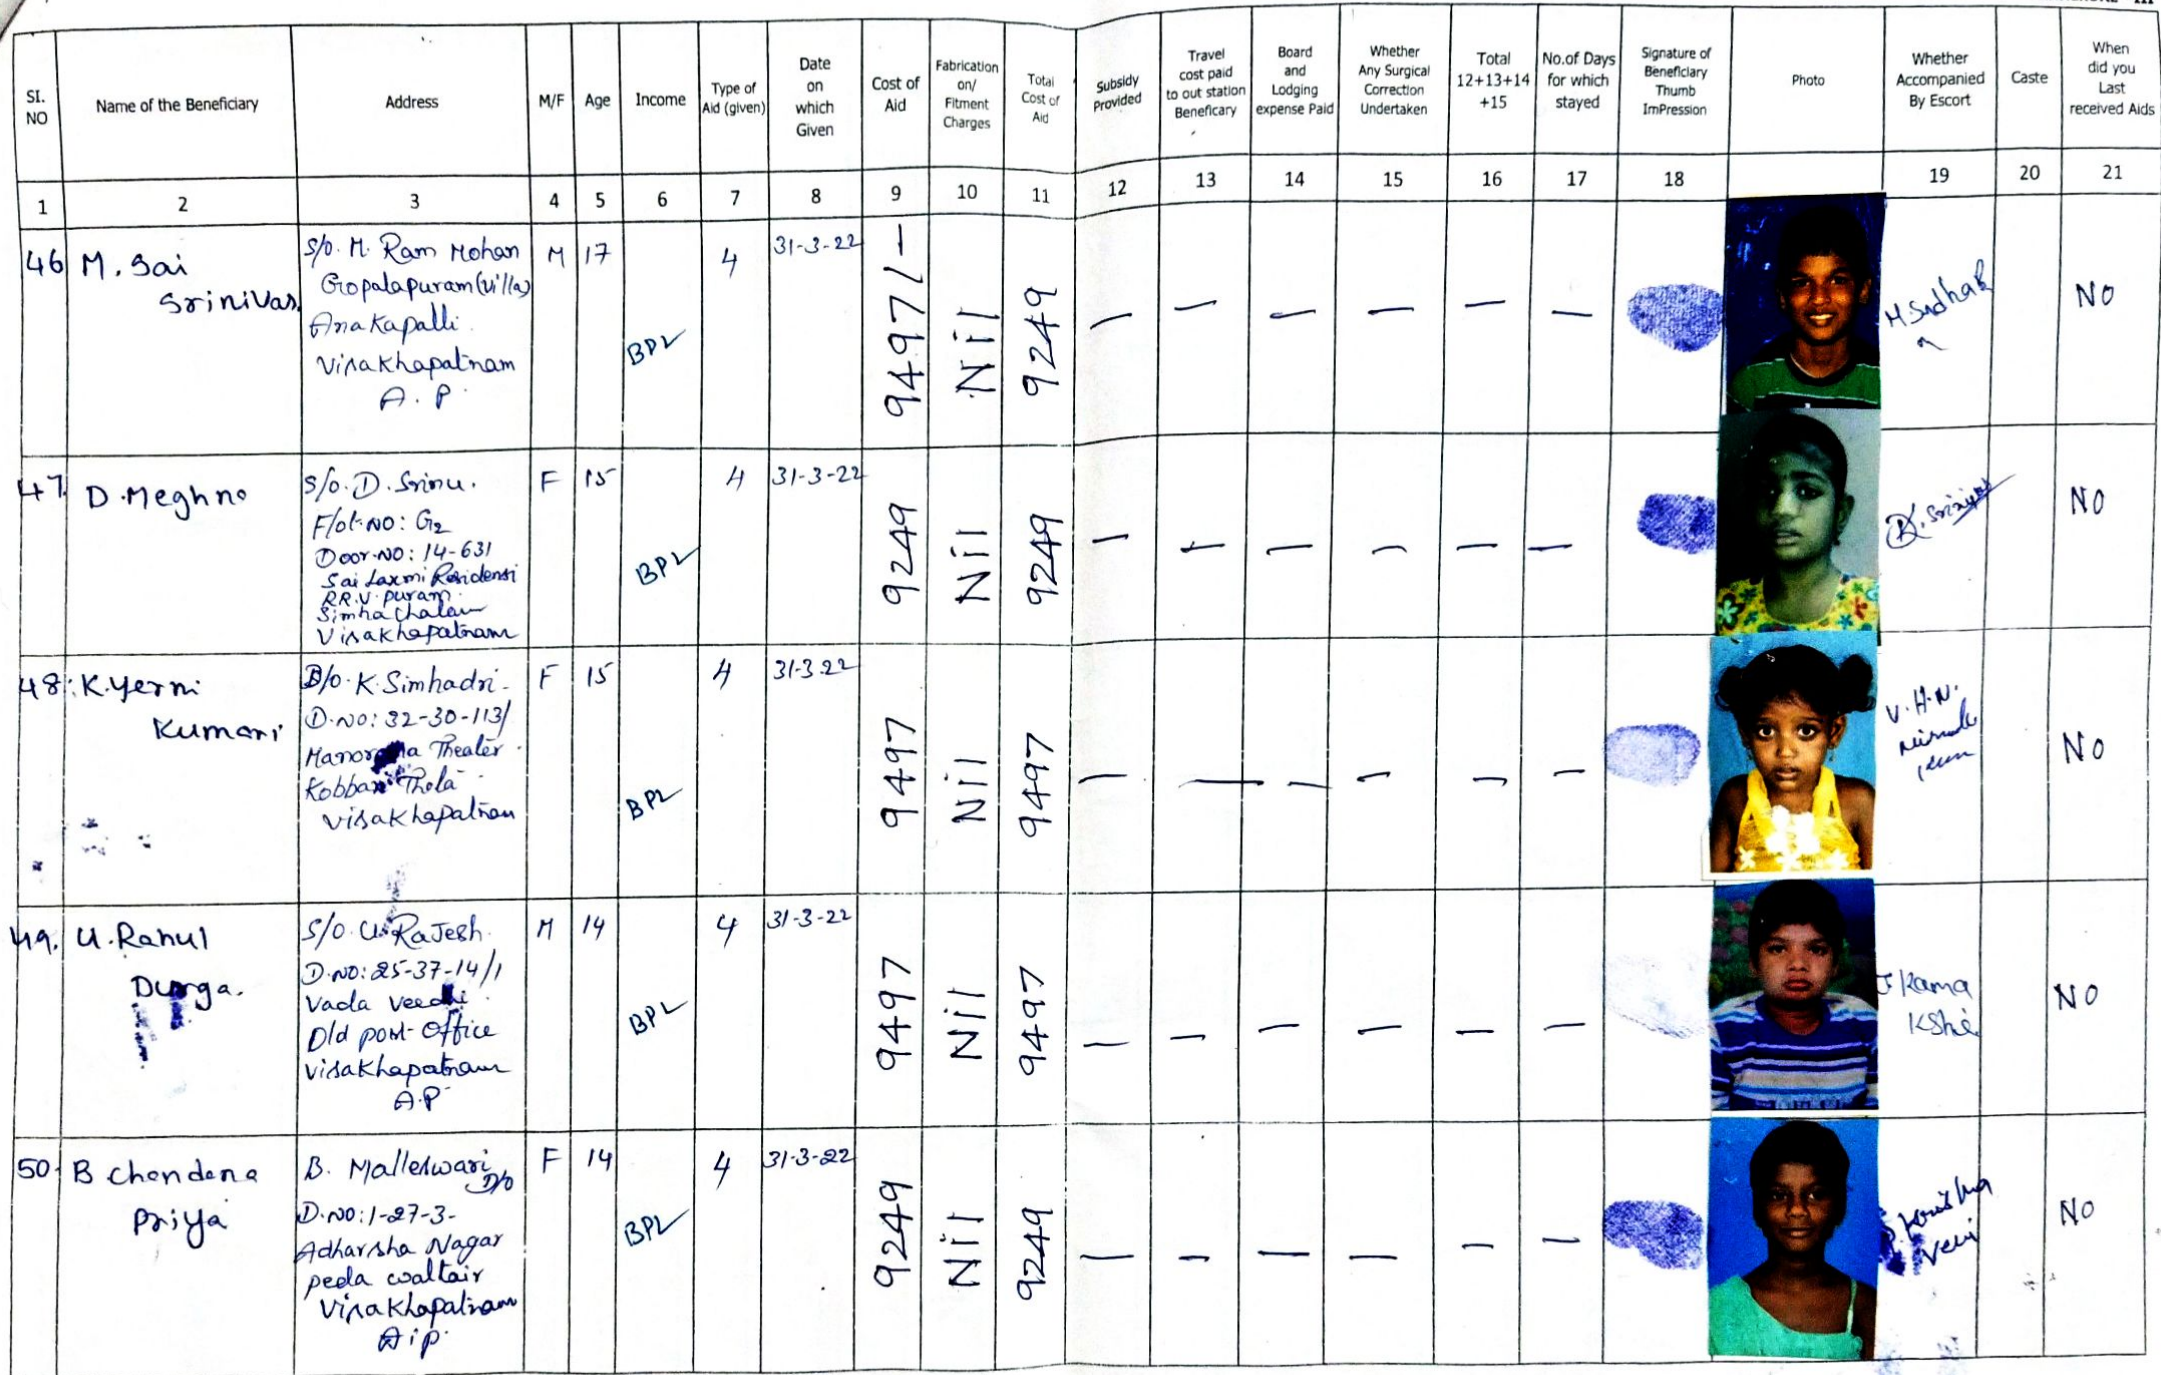 SI. NO
Name of the Beneficiary
Address
M/F
Age
Income
Type of
Aid (given)
Date
on
which
Given
Cost of
Aid
Fabrication
on/
Fitment
Charges
Total
Cost of
Aid
Subsidy
Provided
Travel
cost paid
to out station
Beneficary
Board
and
Lodging
expense Paid
Whether
Any Surgical
Correction
Undertaken
Total
12+13+14
+15
No.of Days
for which
stayed
Signature of
Beneficiary
Thumb
ImPression
Photo
Whether
Accompanied
By Escort
Caste
When
did you
Last
received Aids
1 2 3 4 5 6 7 8 9 10 11 12 13 14 15 16 17 18 19 20 21
46 M. Sai
Srinivas.
S/o. M. Ram Mohan
Gopalapuram (villa)
Anakapalli
Visakhapatnam
A. P.
M 17 BPL 4 31-3-22 9497/- Nil 9249 — — — — — —
M Sudhak
NO
47. D. Meghno
S/o. D. Srinu.
Flot. NO: G2
Door-NO: 14-631
Sai Laxmi Residensi
RR.V. puram
Simhachalam
Visakhapatnam
F 15 BPL 4 31-3-22 9249 Nil 9249 — — — — — —
NO
48. K. Yerni
Kumari
D/o. K. Simhadri.
D.NO: 32-30-113/
Theater.
Kobbari Thota
Visakhapatnam
F 15 BPL 4 31-3-22 9497 Nil 9497 — — — — — —
V. H. N.
NO
49. U. Rahul
Durga.
S/o. U. RaJesh.
D.NO: 25-37-14/1
Vada Veedhi
Old post-office
Visakhapatnam
A.P
M 14 BPL 4 31-3-22 9497 Nil 9497 — — — — — —
Kama
Kshi
NO
50. B Chandana
Priya
B. Malleswari D/o
D.NO: 1-27-3-
Adharsha Nagar
peda waltair
Visakhapatnam
A.P.
F 14 BPL 4 31-3-22 9249 Nil 9249 — — — — — —
Veni
NO